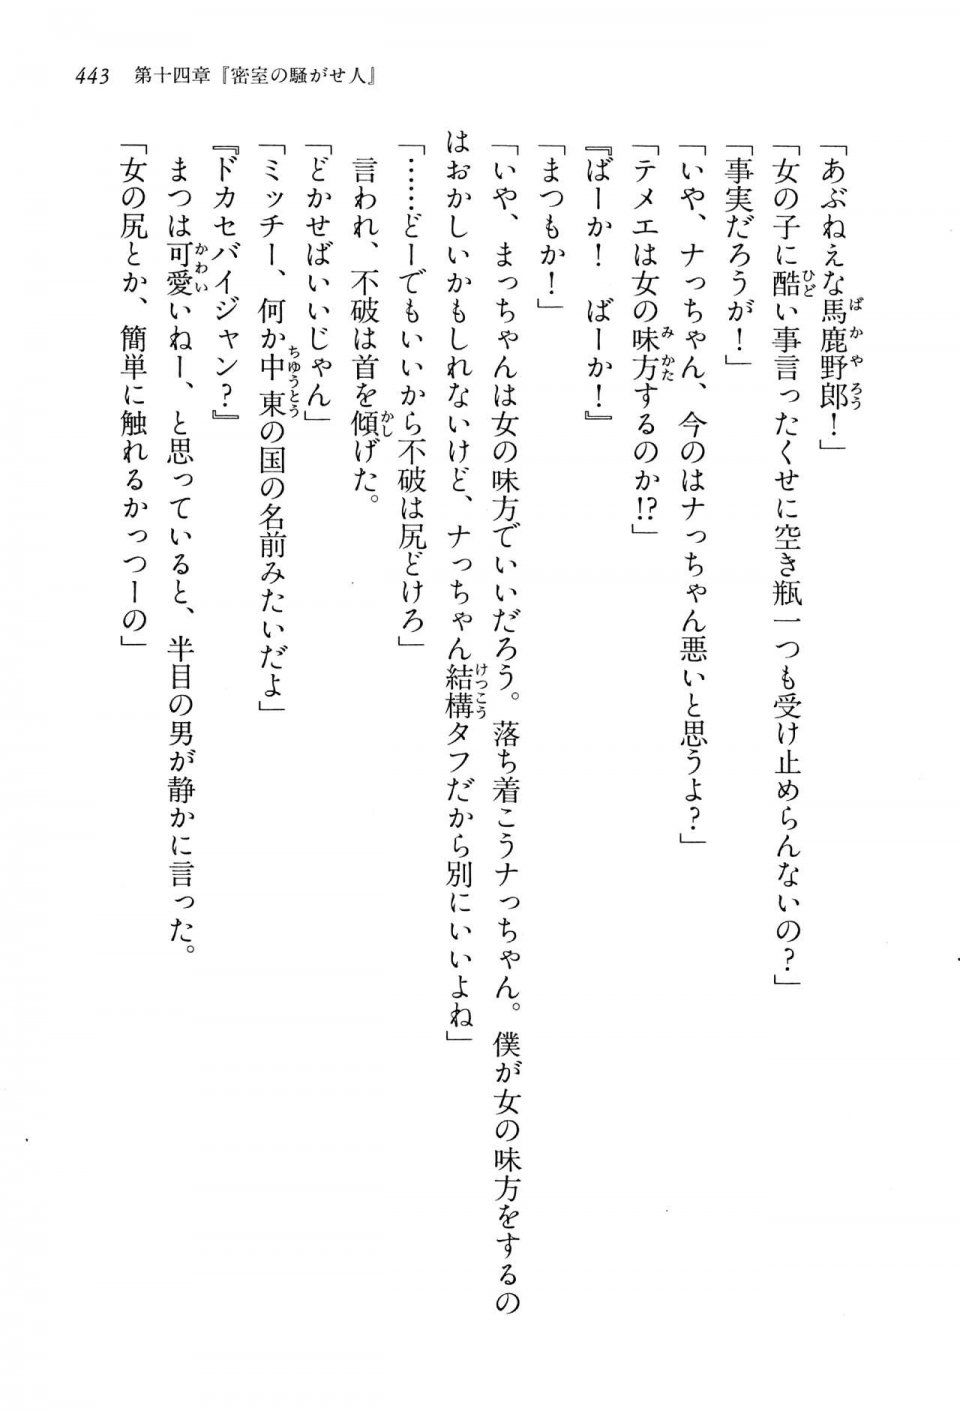 443 第十四章『密室の騒がせ人』
「あぶねぇな馬鹿野郎！」
「女の子に酷い事言ったくせに空き瓶一つも受け止めらんないの？」
「事実だろうが！」
「いや、ナっちゃん、今のはナっちゃん悪いと思うよ？」
「テメエは女の味方するのか!?」
『ばーか！　ばーか！』
「まつもか！」
「いや、まっちゃんは女の味方でいいだろう。落ち着こうナっちゃん。僕が女の味方をするの
はおかしいかもしれないけど、ナっちゃん結構タフだから別にいいよね」
「……どーでもいいから不破は尻どけろ」
言われ、不破は首を傾げた。
「どかせばいいじゃん」
「ミッチー、何か中東の国の名前みたいだよ」
『ドカセバイジャン？』
まつは可愛いねー、と思っていると、半目の男が静かに言った。
「女の尻とか、簡単に触れるかっつーの」